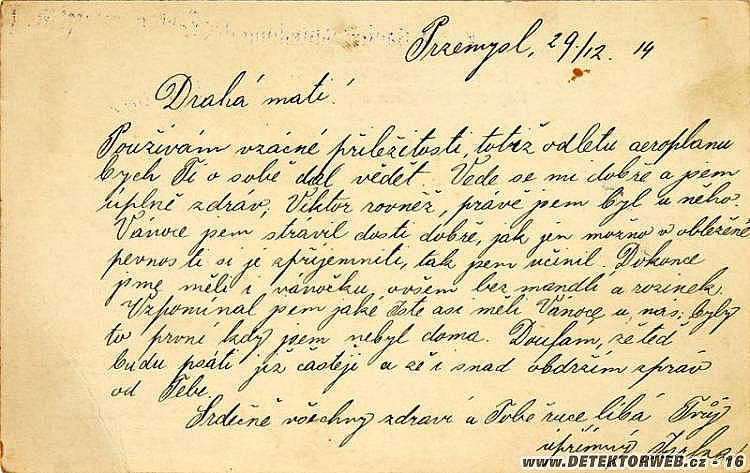 Przemysl, 29./12. 14
Drahá mati!
Používám vzácné příležitosti, totiž odletu aeroplanu
bych Ti o sobě dal vědět. Vede se mi dobře a jsem
úplně zdráv, Viktor rovněž, právě jsem byl u něho.
Vánoce jsem strávil dosti dobře, jak jen možno v obležené
pevnosti si je zpříjemniti, tak jsem učinil Dokonce
jsme měli i vánočku, ovšem bez mandlí a rozinek.
Vzpomínal jsem jaké jste asi měli Vánoce u nás; byly
to první kdy jsem nebyl doma. Doufám, že teď
budu psáti již častěji a že i snad obdržím zpráv
od Tebe.
Srdečně všechny zdraví a Tobě ruce líbá Tvůj
upřímný
www.DETEKTORWEB.cz - 16